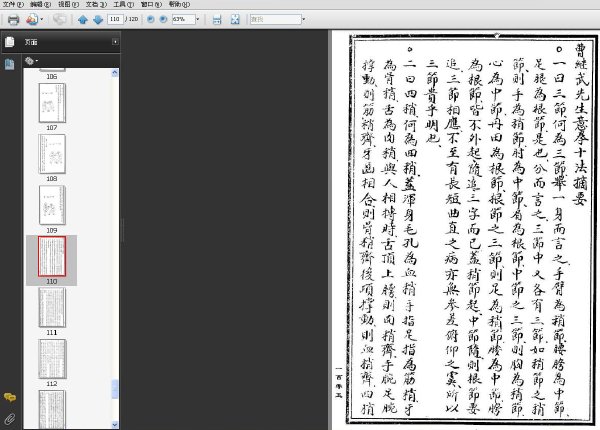 文件(F) 编辑(E) 视图(V) 文档(D) 工具(T) 窗口(W) 帮助(H)
110 / 120 63% 查找
页面
106
107
108
109
110
111
112
曹繼武先生意拳十法摘要
一曰三節何為三節舉一身而言之手臂為梢節腰膀為中節
足腿為根節是也分而言之三節中又各有三節如梢節之梢
節則手為梢節肘為中節肩為根節中節之三節則胸為梢節
心為中節丹田為根節根節之三節則足為梢節膝為中節胯
為根節皆不外起隨追三字而已蓋梢節起中節隨則根節要
追三節相應不至有長短曲直之病亦無參差俯仰之虞所以
三節貴乎明也
二曰四梢何為四梢蓋渾身毛孔為血梢手指足指為筋梢牙
為骨梢舌為肉梢與人相搏時舌頂上膀則肉梢齊手腕足腕
撑動則筋梢齊牙齒相合則骨梢齊後項撑動則血梢齊四梢
一百零五